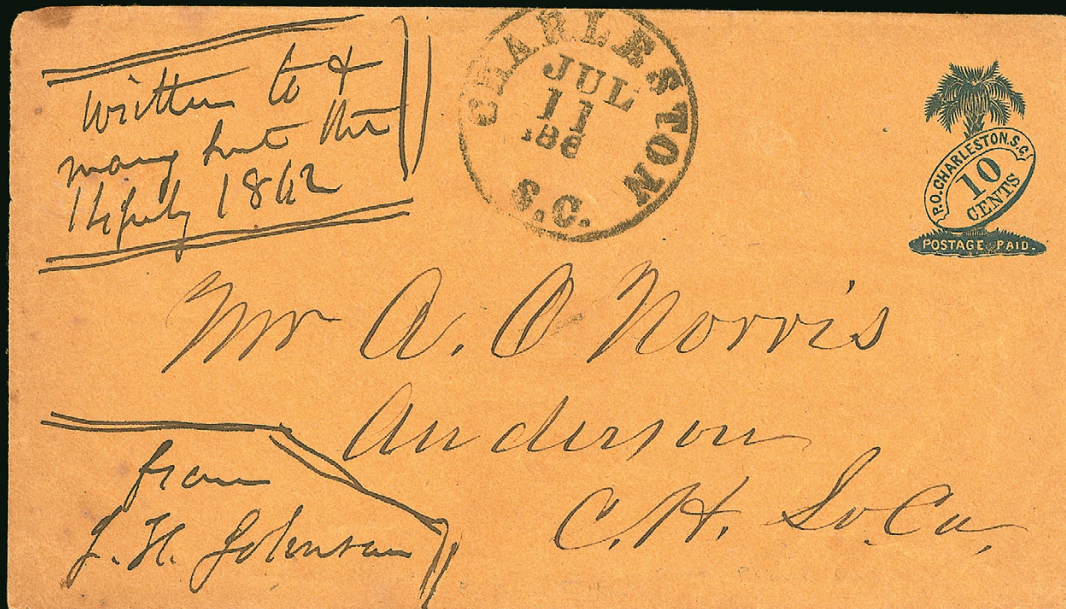 written to &
many hut the
14 July 1862
CHARLESTON
JUL
11
186
S.C.
P.O. CHARLESTON. S.C.
10
CENTS
POSTAGE PAID.
Mr A. O Norris
Anderson
C. H. So. Ca.
from
J. H. Johnson